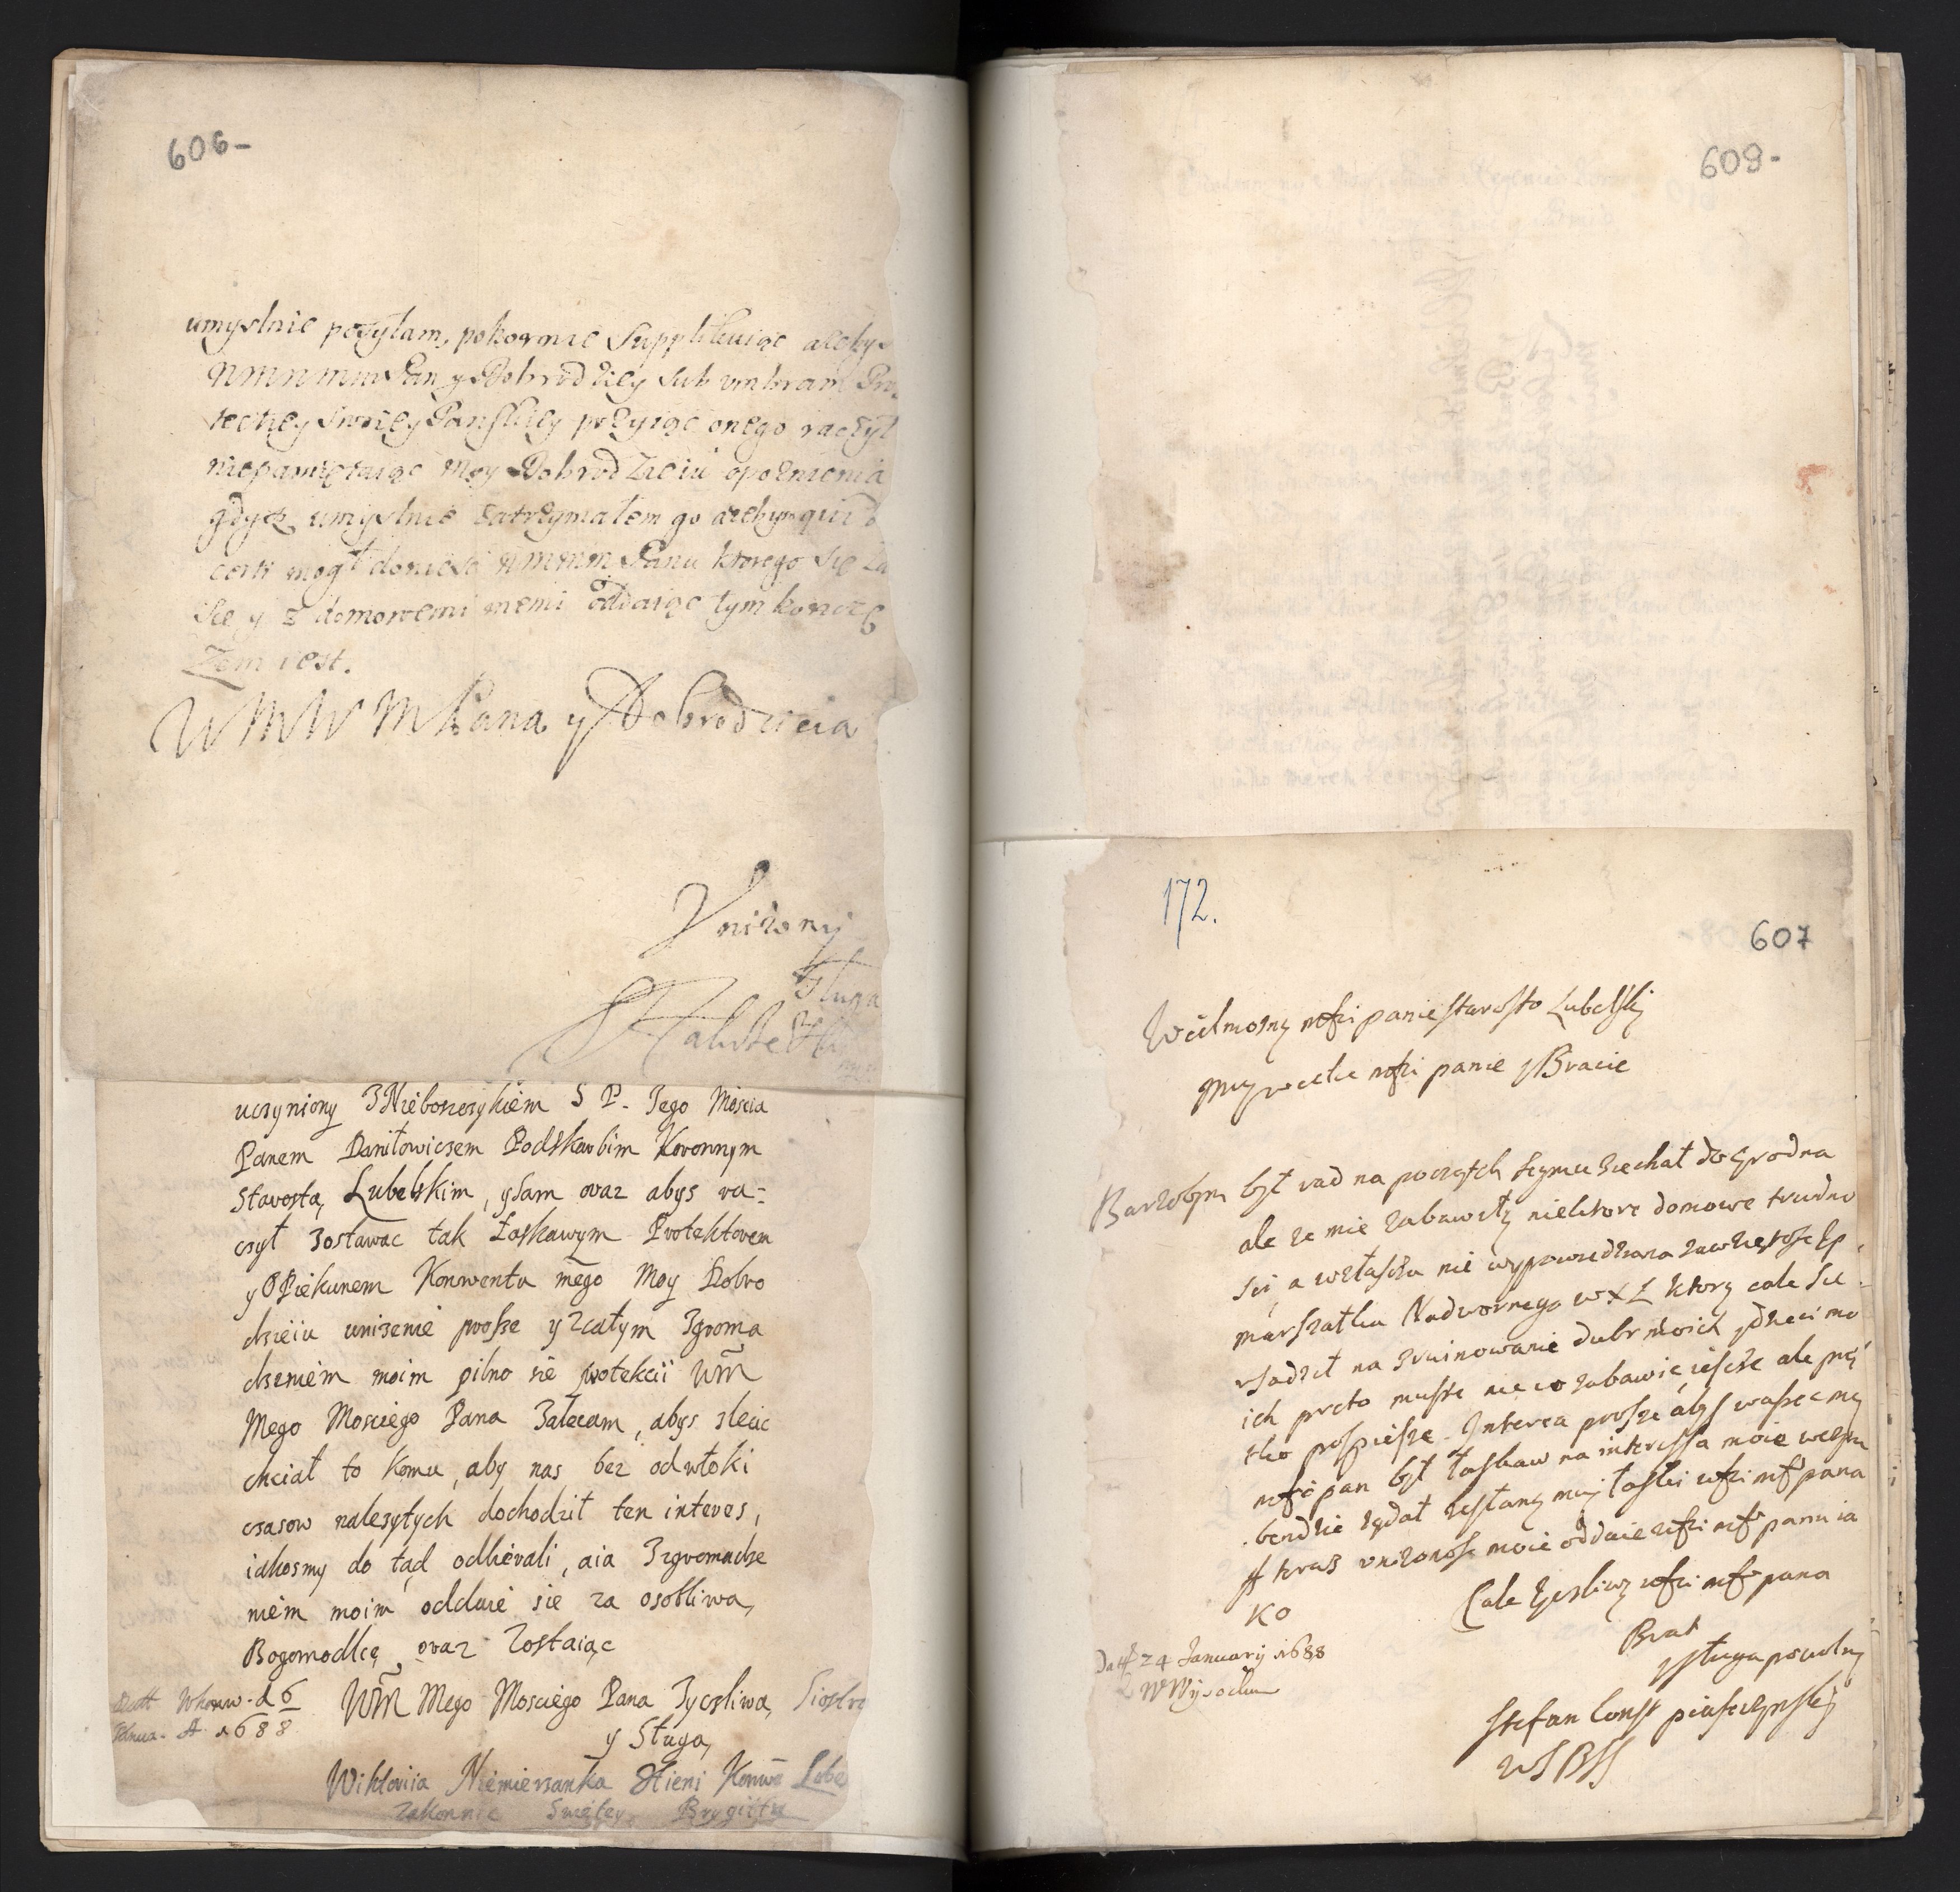 606-
umyslnie posyłam, pokornie supplikuiąc ażeby
WMWMM Pan y Dobrodziey sub umbram Pro
tectiey swoiey Panskiey przyiąc onego raczył
niepamiętaiąc moy Dobrodzieiu opoznienia
gdyz umyslnie zatrzymałem go azeby quid
certi mogł doniesc WMWMM Panu ktorego się ła
sce y z domowemi memi oddaiąc tym koncze
Zem iest.
WMWMPana y Dobrodzieia
Vnizony
Sługa
uczyniony z Nieboszczykiem S P. Jego Moscia
Panem Daniłowiczem Podskarbim Koronnym
Starostą Lubelskim, y sam oraz abys ra=
czył zostawac tak Łaskawym Protektorem
y OPiekunem Konwentu mego Moy Dobro
dzieiu unizenie prosze y z całym Zgroma
dzeniem moim pilno sie protekcii WM
Mego Mosciego Pana Zalecam, abys zlecic
chciał to komu, aby nas bez odwłoki
czasow nalezytych dochodził ten interes,
iakosmy do tąd odbierali, a ia z zgromadze
niem moim oddaie sie za osobliwa
Bogomodlcę oraz Zostaiąc
WM Mego Mosciego Pana Zyczliwa Siostra
y Sługa
Datt w konw. d 6
Janua. A 1688
Wiktoria Niemierzanka Xieni Konwe Lube
Zakonnic Swiętey Brygitty
609-
172.
607
Wielmozny msci panie starosto Lubelski
moy wielce msci panie y Bracie
Barzobym był rad na początek seymu ziechał do Grodna
ale ze mie zabawiły niektore domowe trudno
sci, a włascza nie wypowiedziana zawziętosc Jp.
marszałka Nadwornego w X L ktory cale sie
vsadził na zruinowanie dubr moich y dzieci mo
ich przto musze nieco zabawic ieszcze ale prę
tko pospiesze. Interea prosze abys waszec moy
msci pan był łaskaw na interessa moie wczym
bendzie ządał zesłany moy łaski wsci ms pana
A teraz vnizonosc moie oddaie wsci ms panu ia
ko
Cale zyczliwy wsci ms pana
Brat
y sługa powolny
Datt 24 January 1688
W Wysocku
Stefan Const piaseczynsky